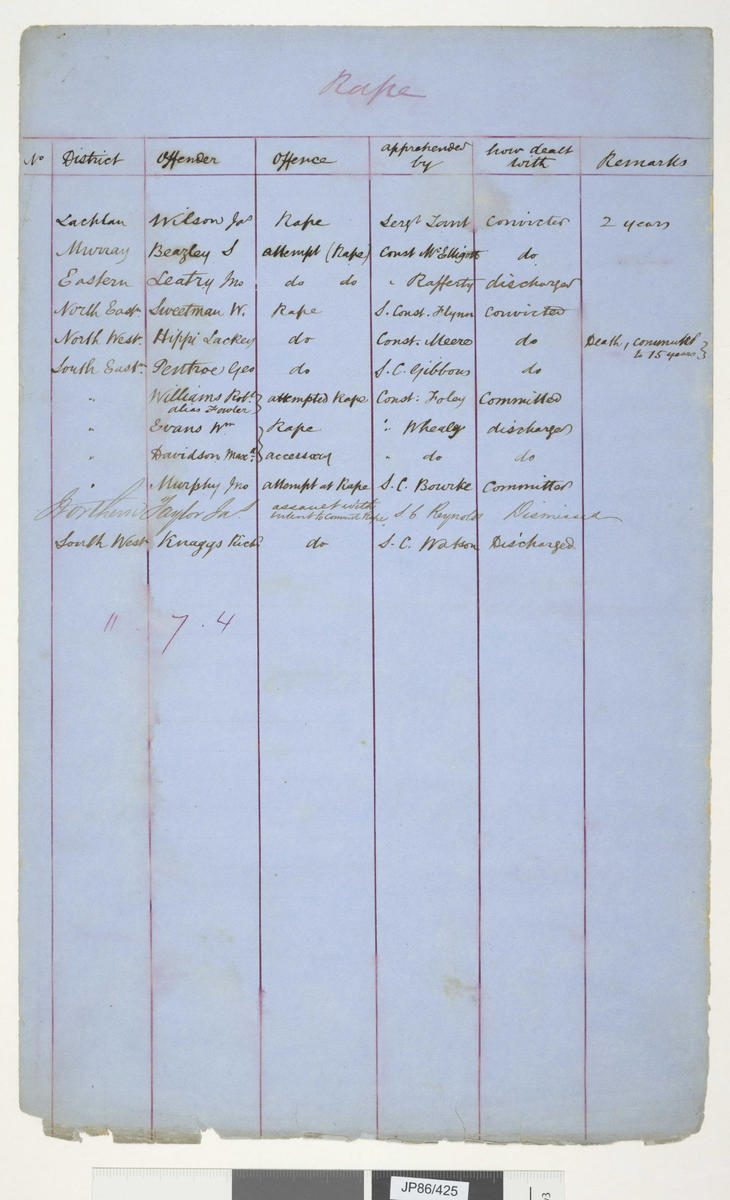 Rape
No District Offender Offence apprehended by how dealt with Remarks
Lachlan Wilson Jas Rape Sergt convicted 2 years
Murray Beazley S attempt (Rape) Const McElligott do
Eastern Leatry Jno do do " Rafferty discharged
North Eastn Sweetman W. Rape S. Const. Flynn convicted
North West. Hippi Lackey do Const. Meere do Death, commuted to 15 years
South Eastn Pentroe Geo do S.C. Gibbons do
" Williams Robt alias Fowler attempted Rape Const. Foley Committed
" Evans Wm Rape " Whealy discharged
" Davidson accessory " do do
" Murphy Jno attempt at Rape S.C. Bourke Committed
Northern Taylor Jas assault with intent to Commit Rape S C Reynolds Dismissed
South West Knaggs Richd do S.C. Watson Discharged
11 . 7 . 4
JP86/425